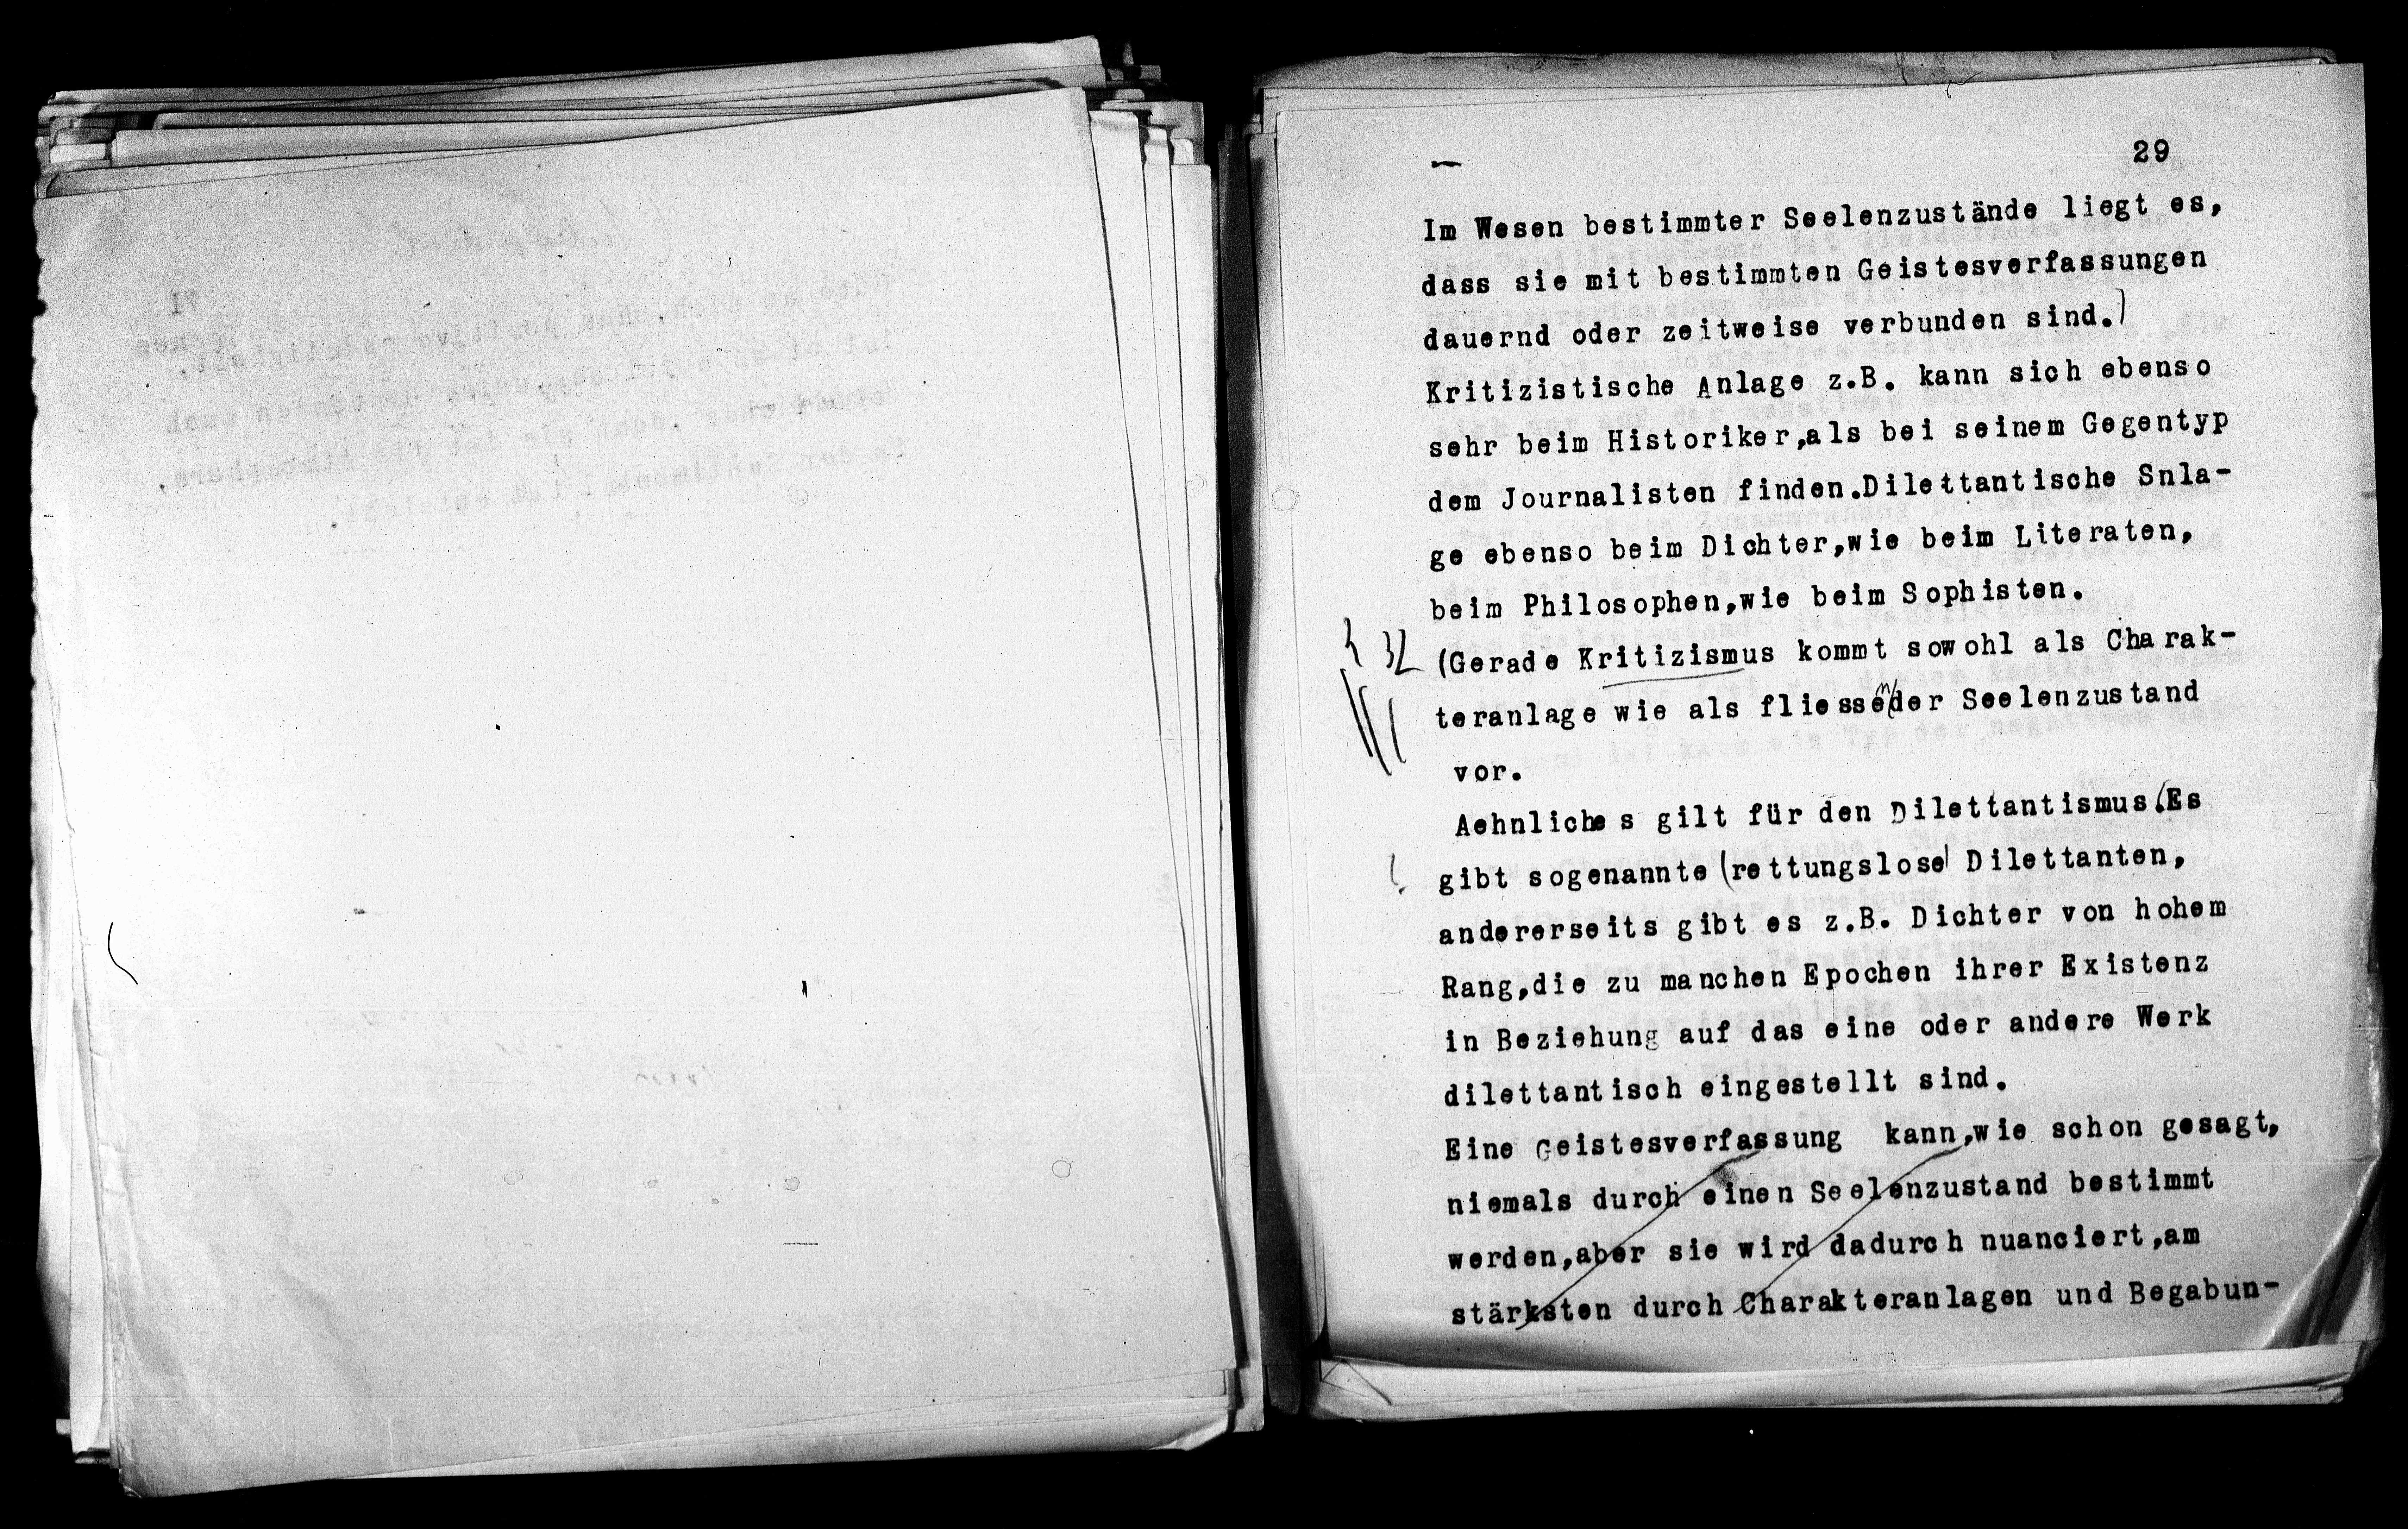 29
Im Wesen bestimmter Seelenzustände liegt es,
dass sie mit bestimmten Geistesverfassungen
dauernd oder zeitweise verbunden sind.)
Kritizistische Anlage z.B. kann sich ebenso
sehr beim Historiker,als bei seinem Gegentyp
dem Journalisten finden.Dilettantische Snla-
ge ebenso beim Dichter,wie beim Literaten,
beim Philosophen,wie beim Sophisten.
(Gerade Kritizismus kommt sowohl als Charak-
teranlage wie als fliessender Seelenzustand
vor.
Aehnliches gilt für den Dilettantismus.(Es
gibt sogenannte (rettungslose) Dilettanten,
andererseits gibt es z.B. Dichter von hohem
Rang,die zu manchen Epochen ihrer Existenz
in Beziehung auf das eine oder andere Werk
dilettantisch eingestellt sind.
Eine Geistesverfassung kann,wie schon gesagt,
niemals durch einen Seelenzustand bestimmt
werden,aber sie wird dadurch nuanciert,am
stärksten durch Charakteranlagen und Begabun-